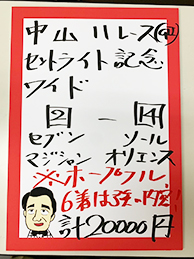 中山11レース(G2)
セントライト記念
ワイド
2 - 14
セブン ソール
マジシャン オリエンス
※ホープフル
6着は強い内容!
計20000円